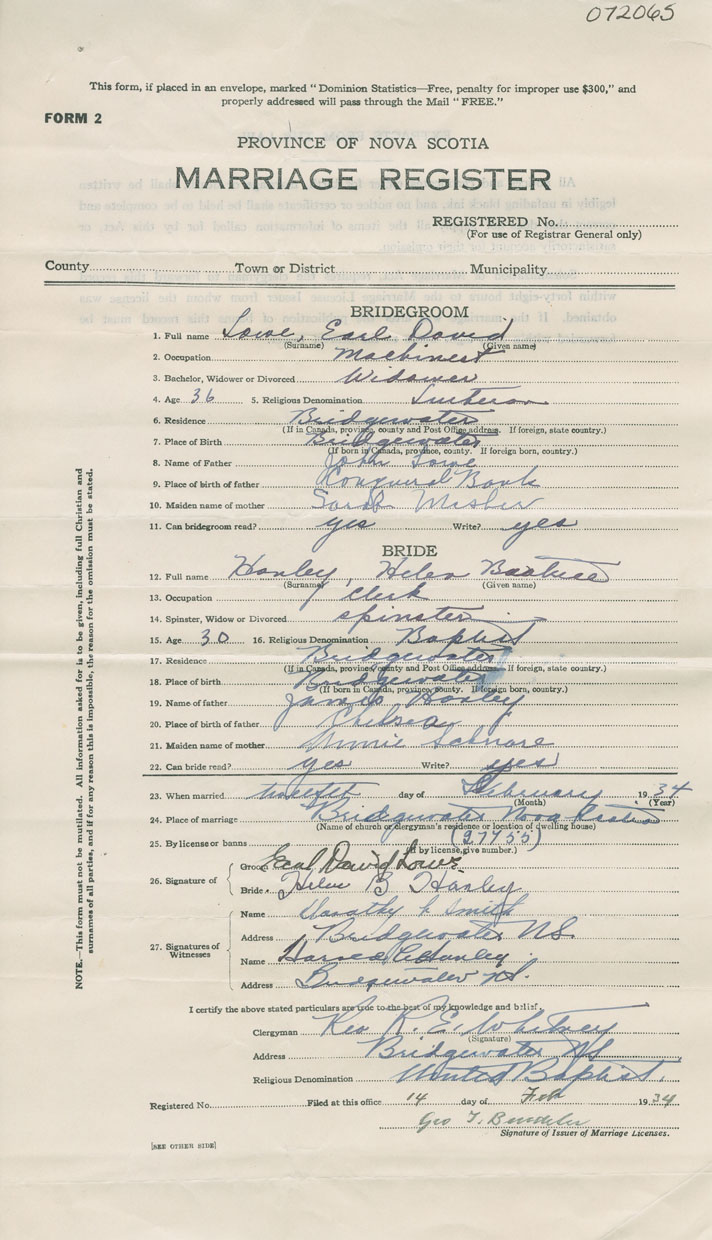 072065
This form, if placed in an envelope, marked "Dominion Statistics—Free, penalty for improper use $300," and
properly addressed will pass through the Mail "FREE."
FORM 2
PROVINCE OF NOVA SCOTIA
MARRIAGE REGISTER
REGISTERED No.
(For use of Registrar General only)
County Town or District Municipality
BRIDEGROOM
1. Full name Lowe, Earl David
(Surname) (Given name)
2. Occupation Machinest
3. Bachelor, Widower or Divorced Widower
4. Age 36 5. Religious Denomination Lutheran
6. Residence Bridgewater
(If in Canada, province, county and Post Office address. If foreign, state country.)
7. Place of Birth Bridgewater
(If born in Canada, province, county. If foreign born, country.)
8. Name of Father John Lowe
9. Place of birth of father Conqueral Bank
10. Maiden name of mother Sarah
11. Can bridegroom read? yes Write? yes
BRIDE
12. Full name Hanley, Helen Beatrice
(Surname) (Given name)
13. Occupation clerk
14. Spinster, Widow or Divorced spinster
15. Age 30 16. Religious Denomination Baptist
17. Residence Bridgewater
(If in Canada, province, county and Post Office address. If foreign, state country.)
18. Place of birth Bridgewater
(If born in Canada, province, county. If foreign born, country.)
19. Name of father James Hanley
20. Place of birth of father Chelsea
21. Maiden name of mother Minnie Schnare
22. Can bride read? yes Write? yes
23. When married twelfth day of February 1934
(Month) (Year)
24. Place of marriage Bridgewater Nova Scotia
(Name of church or clergyman's residence or location of dwelling house)
25. By license or banns (27755)
(If by license, give number.)
26. Signature of
Groom Earl David Lowe
Bride Helen B Hanley
27. Signatures of Witnesses
Name Dorothy G Smith
Address Bridgewater NS
Name Harold Hanley
Address Bridgewater N.S.
I certify the above stated particulars are true to the best of my knowledge and belief.
Clergyman Rev R. E. Whitney
(Signature)
Address Bridgewater NS
Religious Denomination United Baptist.
Registered No. Filed at this office 14 day of Feb 1934
Geo T.
Signature of Issuer of Marriage Licenses.
[SEE OTHER SIDE]
NOTE.—This form must not be mutilated. All information asked for is to be given, including full Christian and
surnames of all parties, and if for any reason this is impossible, the reason for the omission must be stated.